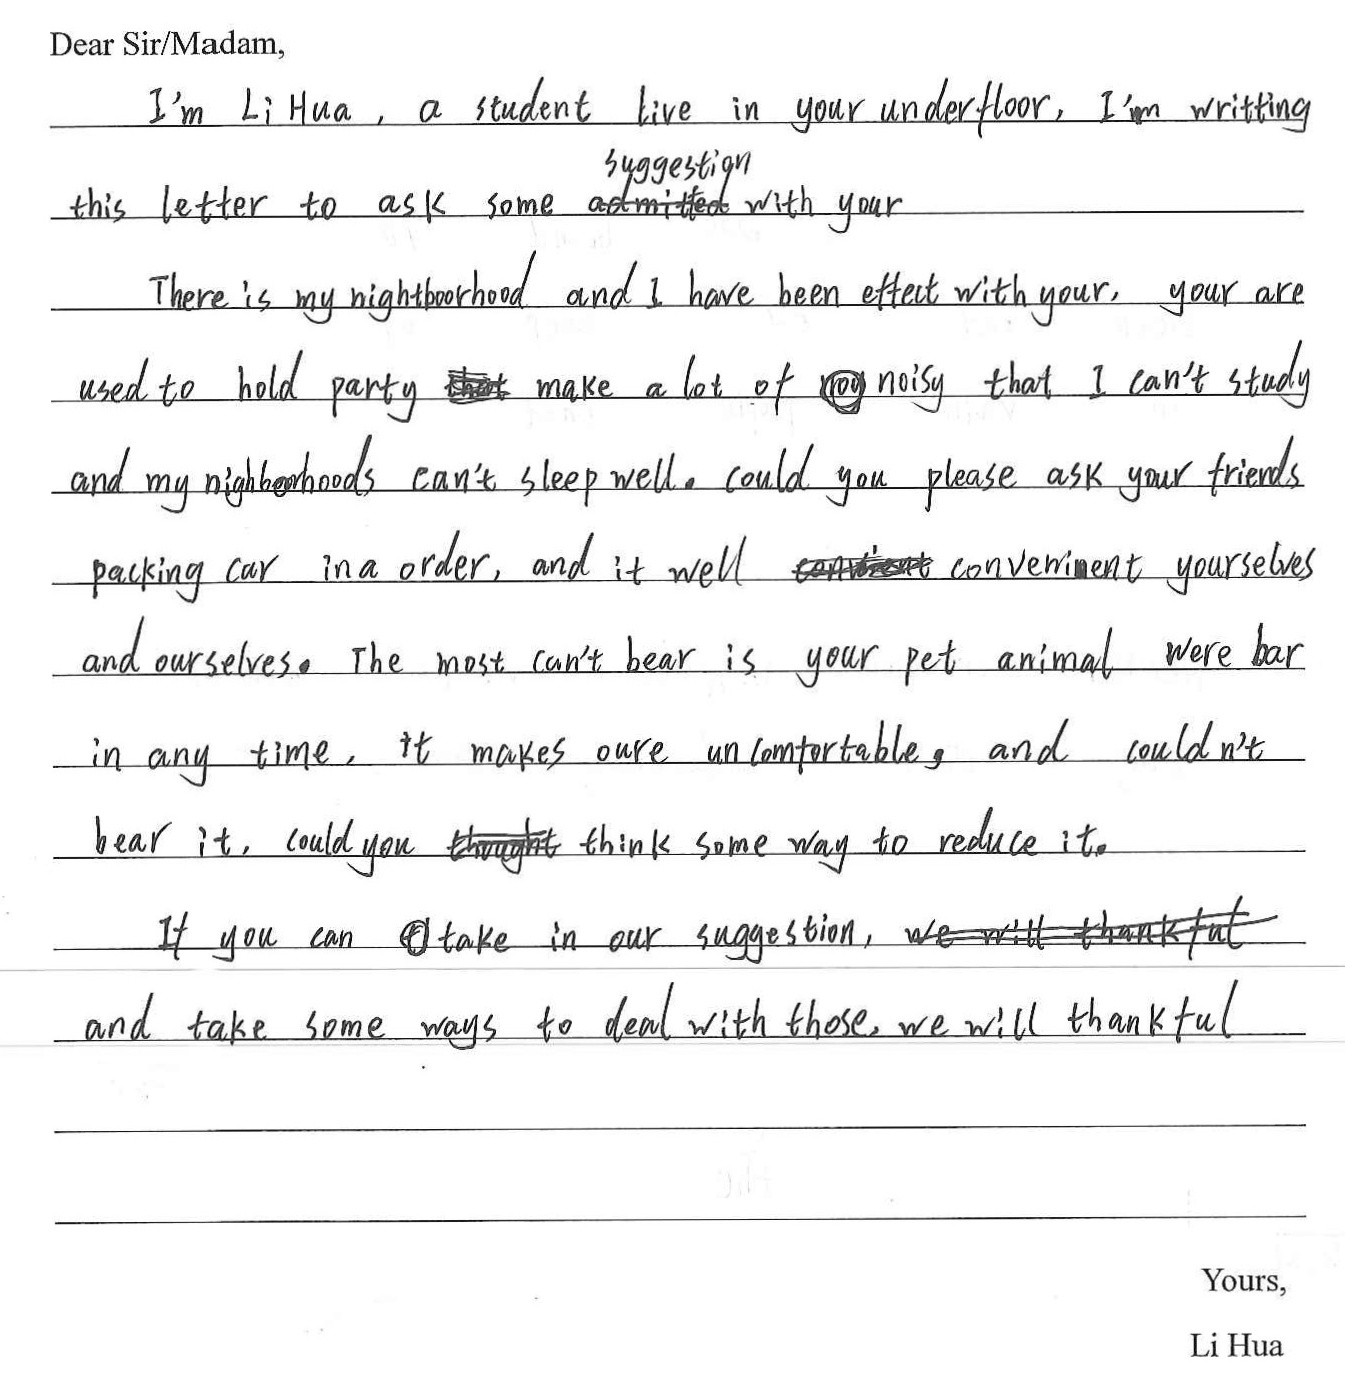 Dear Sir/Madam,
I'm Li Hua, a student live in your underfloor, I'm writting
suggestion
this letter to ask some with your
There is my nightboorhood and I have been effect with your, your are
used to hold party make a lot of noisy that I can't study
and my nighborhoods can't sleep well. could you please ask your friends
packing car in a order, and it well conveninent yourselves
and ourselves. The most can't bear is your pet animal were bar
in any time, it makes oure uncomfortable, and couldn't
bear it, could you think some way to reduce it.
If you can take in our suggestion,
and take some ways to deal with those, we will thankful
Yours,
Li Hua